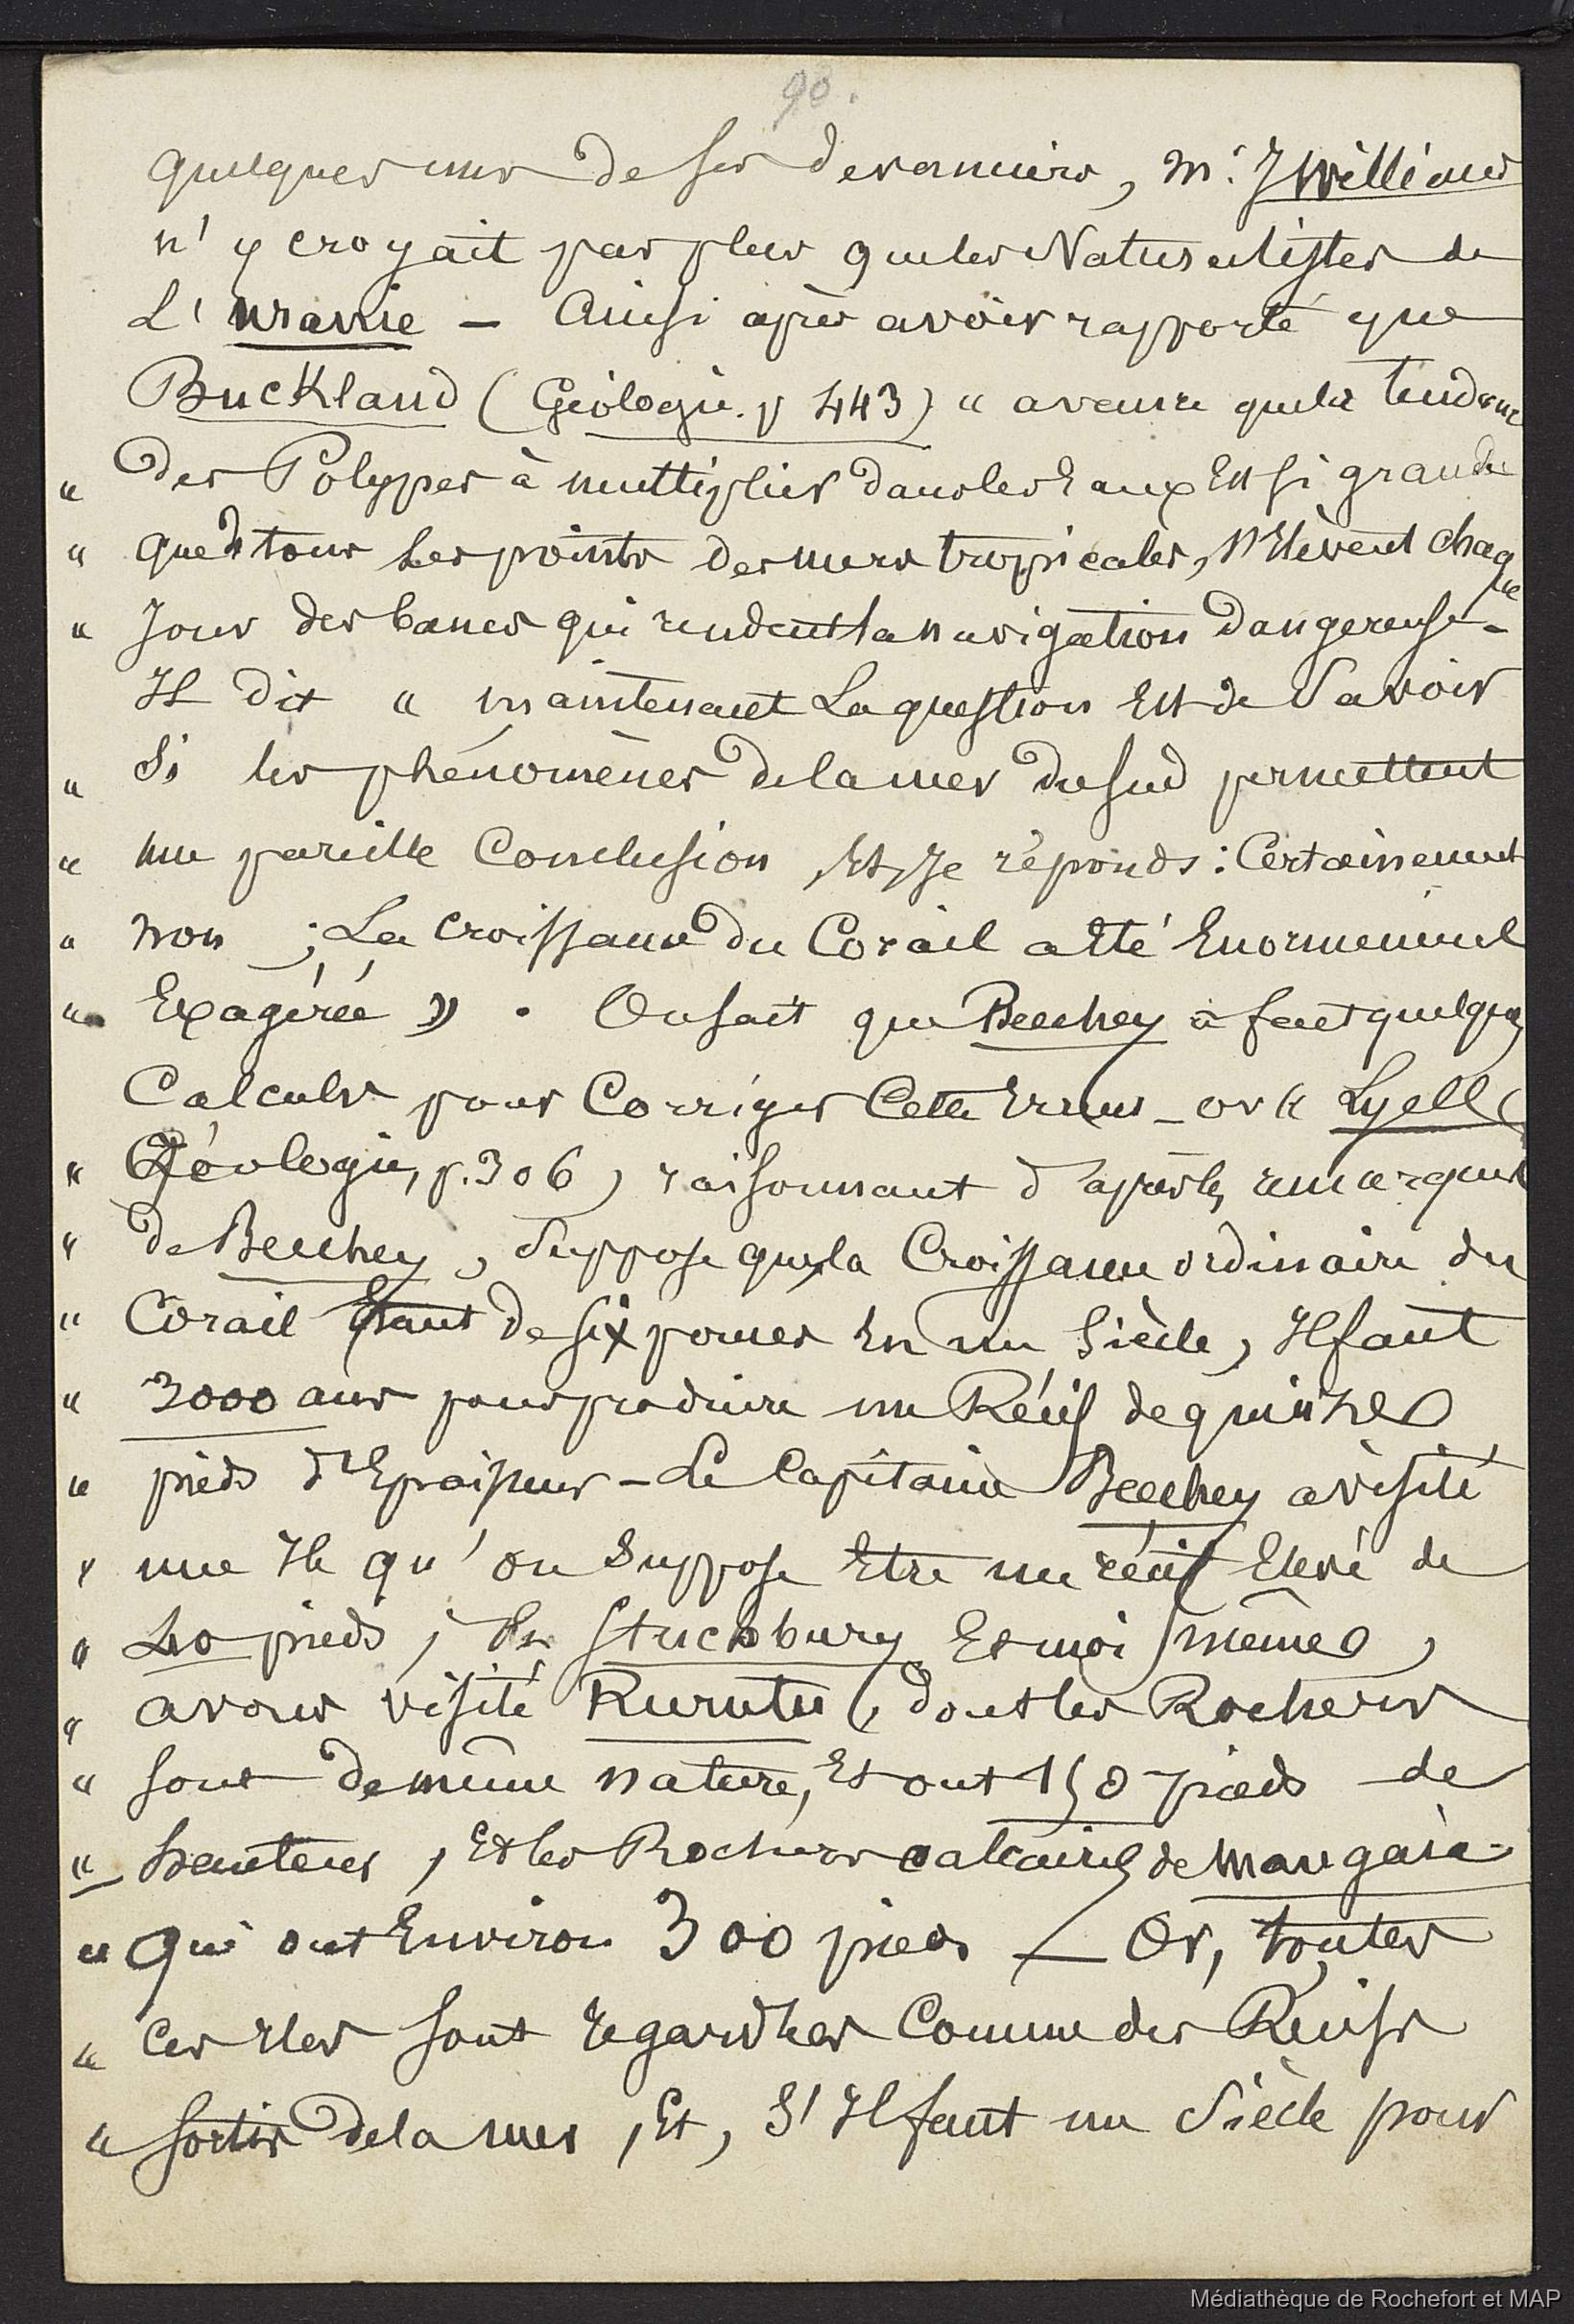 90.
quelques uns de ses devanciers, Mr. J Williams
n'y croyait pas plus que les Naturalistes de
L'Uranie — Ainsi après avoir rapporté que
Buckland (Géologie. p 443) " avance que la tendance
" des Polypes à multiplier dans les Eaux Est si grande
" que de tous les points des mers tropicales, s'Elèvent chaque
" Jour des bancs qui rendent la navigation Dangereuse -
Il dit " maintenant La question Est de Savoir
" Si les phénomènes de la mer du Sud permettent
" une pareille Conclusion, Et, Je réponds : Certainement
" non ; La croissance du Corail a Eté Enormément
" Exagérée » . On sait que Beechey a fait quelques
Calculs pour Corriger Cette Erreur - or " Lyell (
" Géologie, p. 306) raisonnant d'après les remarques
" de Beechey, Suppose que la Croissance ordinaire du
" Corail Etant de six pouces En un Siècle, Il faut
" 3000 ans pour produire un Récif de quinze
" pieds d'Epaisseur - Le Capitaine Beechey a visité
" une Ile qu'on Suppose Etre un récif Elevé de
" 40 pieds ; Mr Stuchbury Et moi même,
" avons visité Rurutu, dont les Rochers
" sont de même nature, Et ont 150 pieds de
" hauteur, Et les Rochers calcaires de Mangaïa -
" Qui ont Environ 300 pieds — Or, toutes
" Ces Iles sont regardées Comme des Récifs
" sortis de la mer, Et, S'Il faut un Siècle pour
Médiathèque de Rochefort et MAP